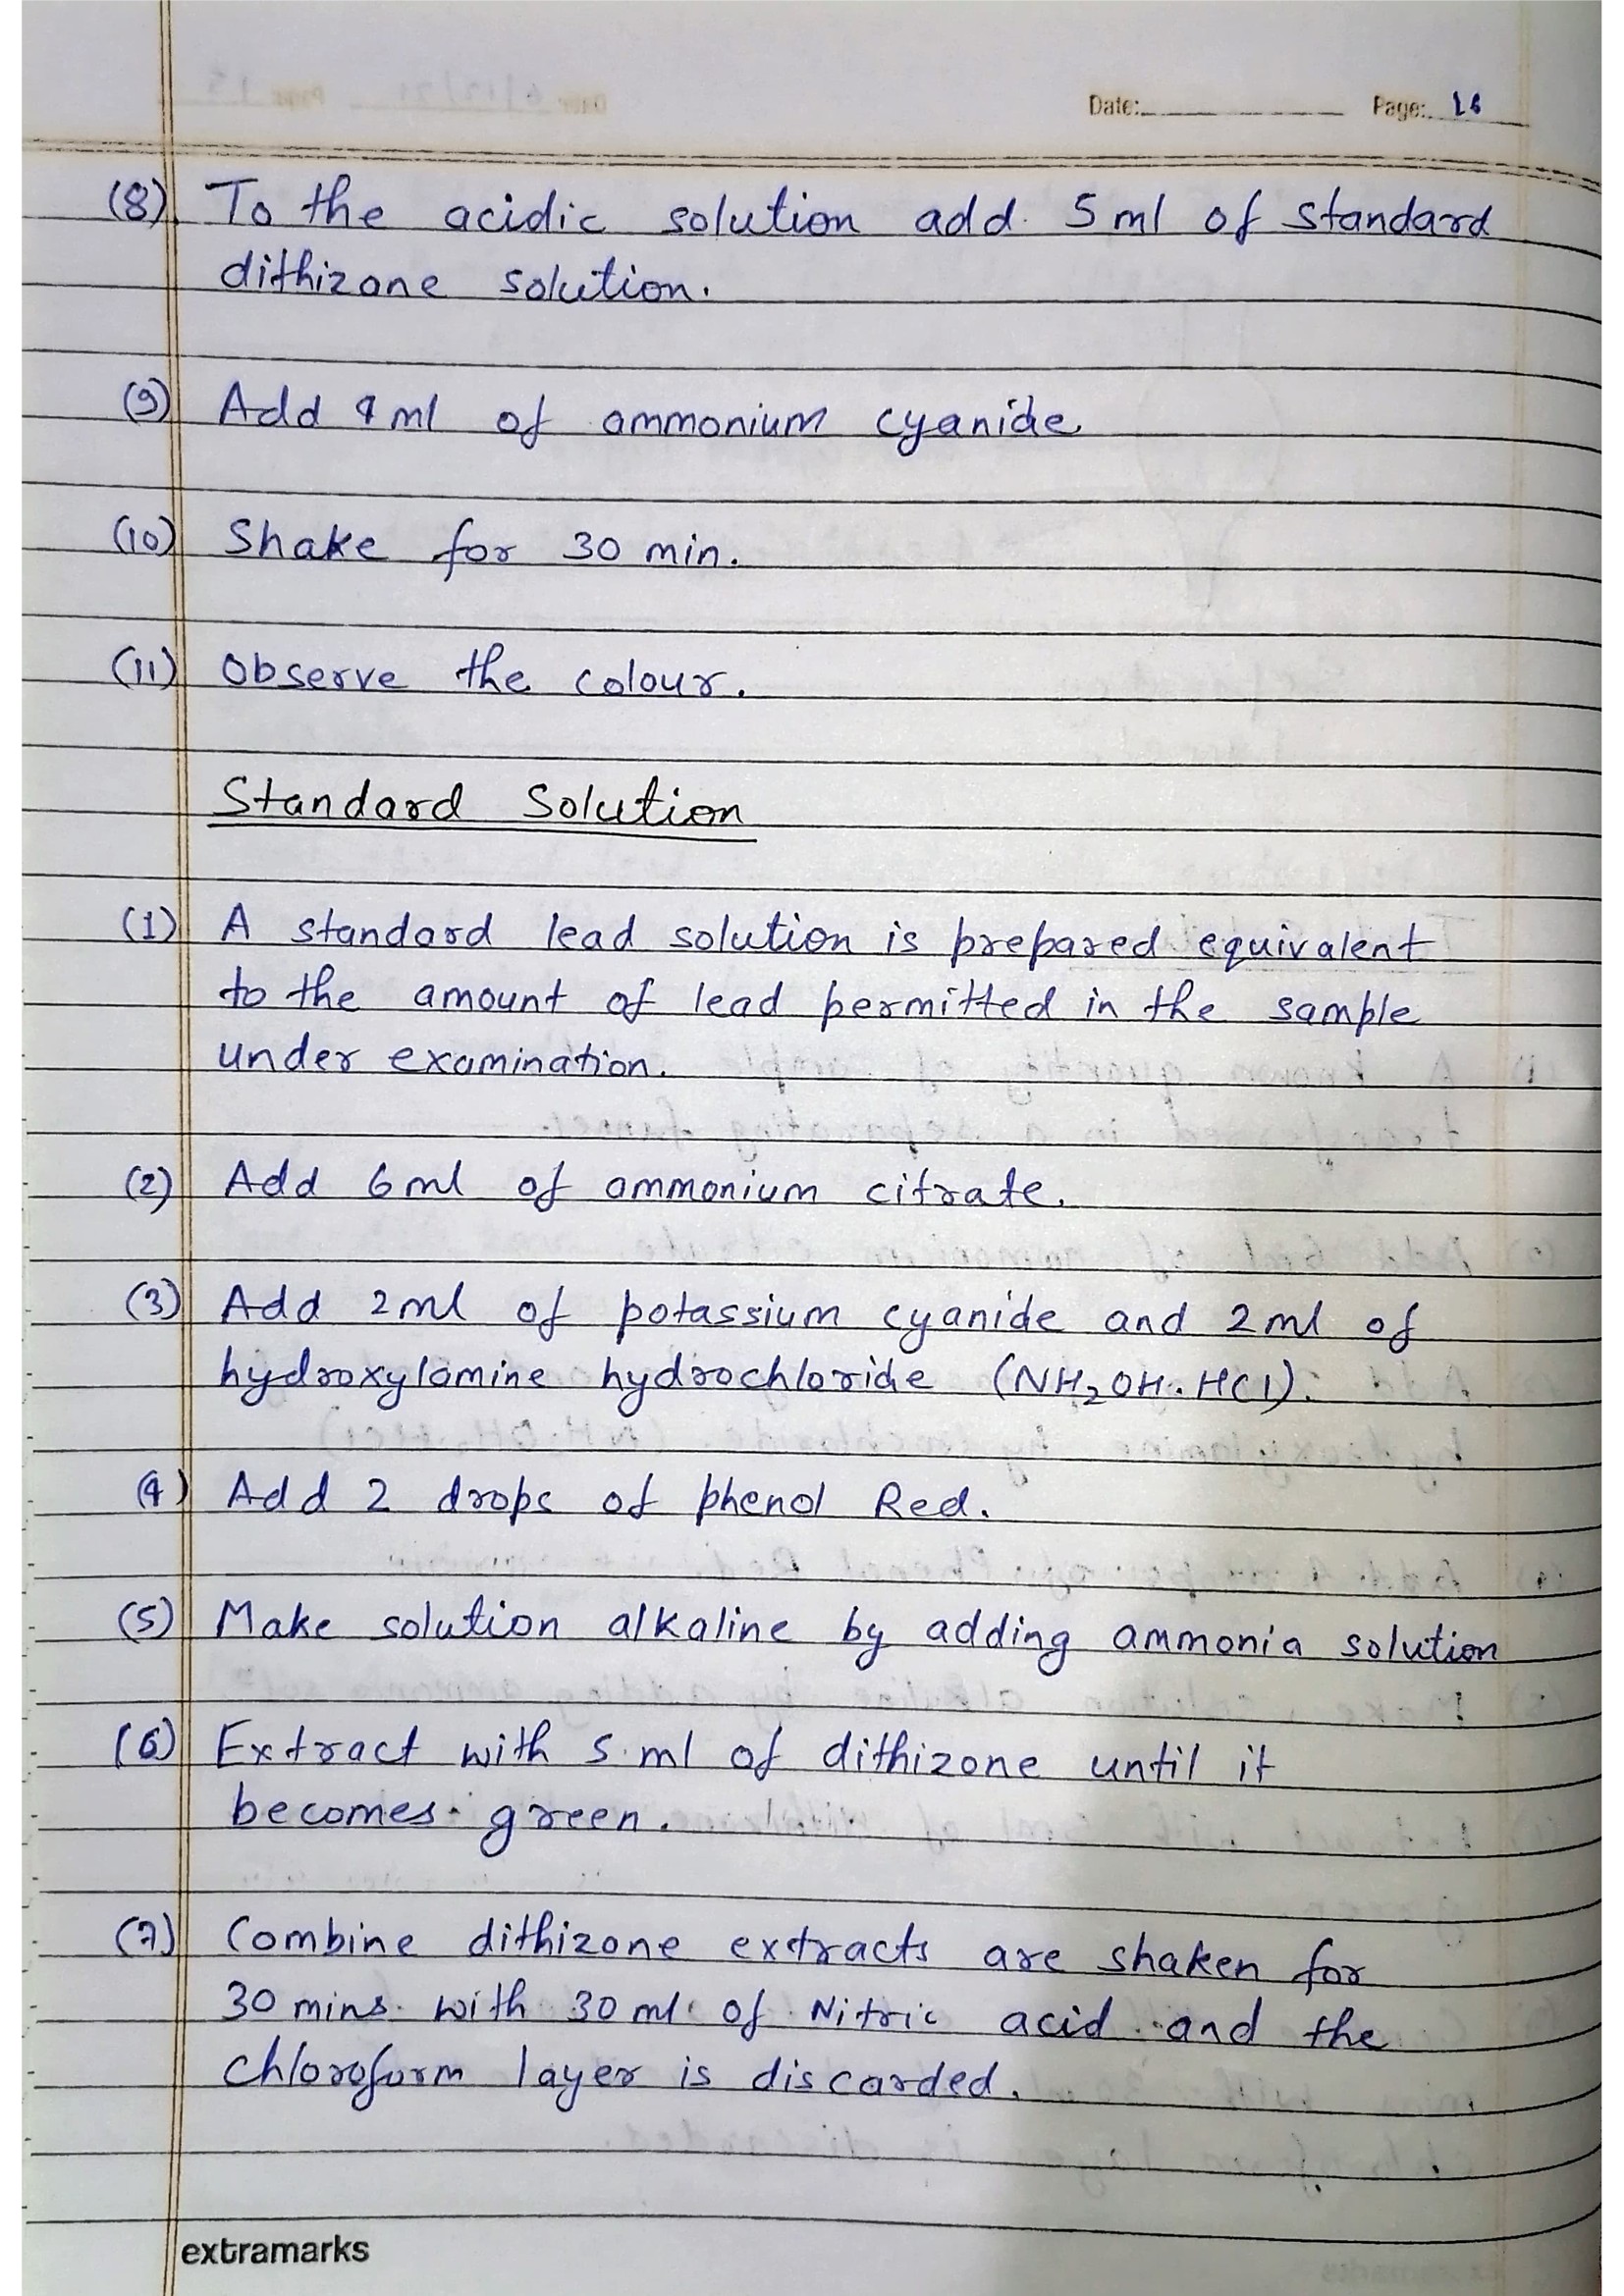 Date: Page: 16
(8) To the acidic solution add 5 ml of standard
dithizone solution.
(9) Add 4 ml of ammonium cyanide
(10) Shake for 30 min.
(11) Observe the colour.
Standard Solution
(1) A standard lead solution is prepared equivalent
to the amount of lead permitted in the sample
under examination.
(2) Add 6 ml of ammonium citrate.
(3) Add 2 ml of potassium cyanide and 2 ml of
hydroxylamine hydrochloride (NH₂OH.HCl).
(4) Add 2 drops of phenol Red.
(5) Make solution alkaline by adding ammonia solution
(6) Extract with 5 ml of dithizone until it
becomes green.
(7) Combine dithizone extracts are shaken for
30 mins with 30 ml of Nitric acid and the
chloroform layer is discarded.
extramarks